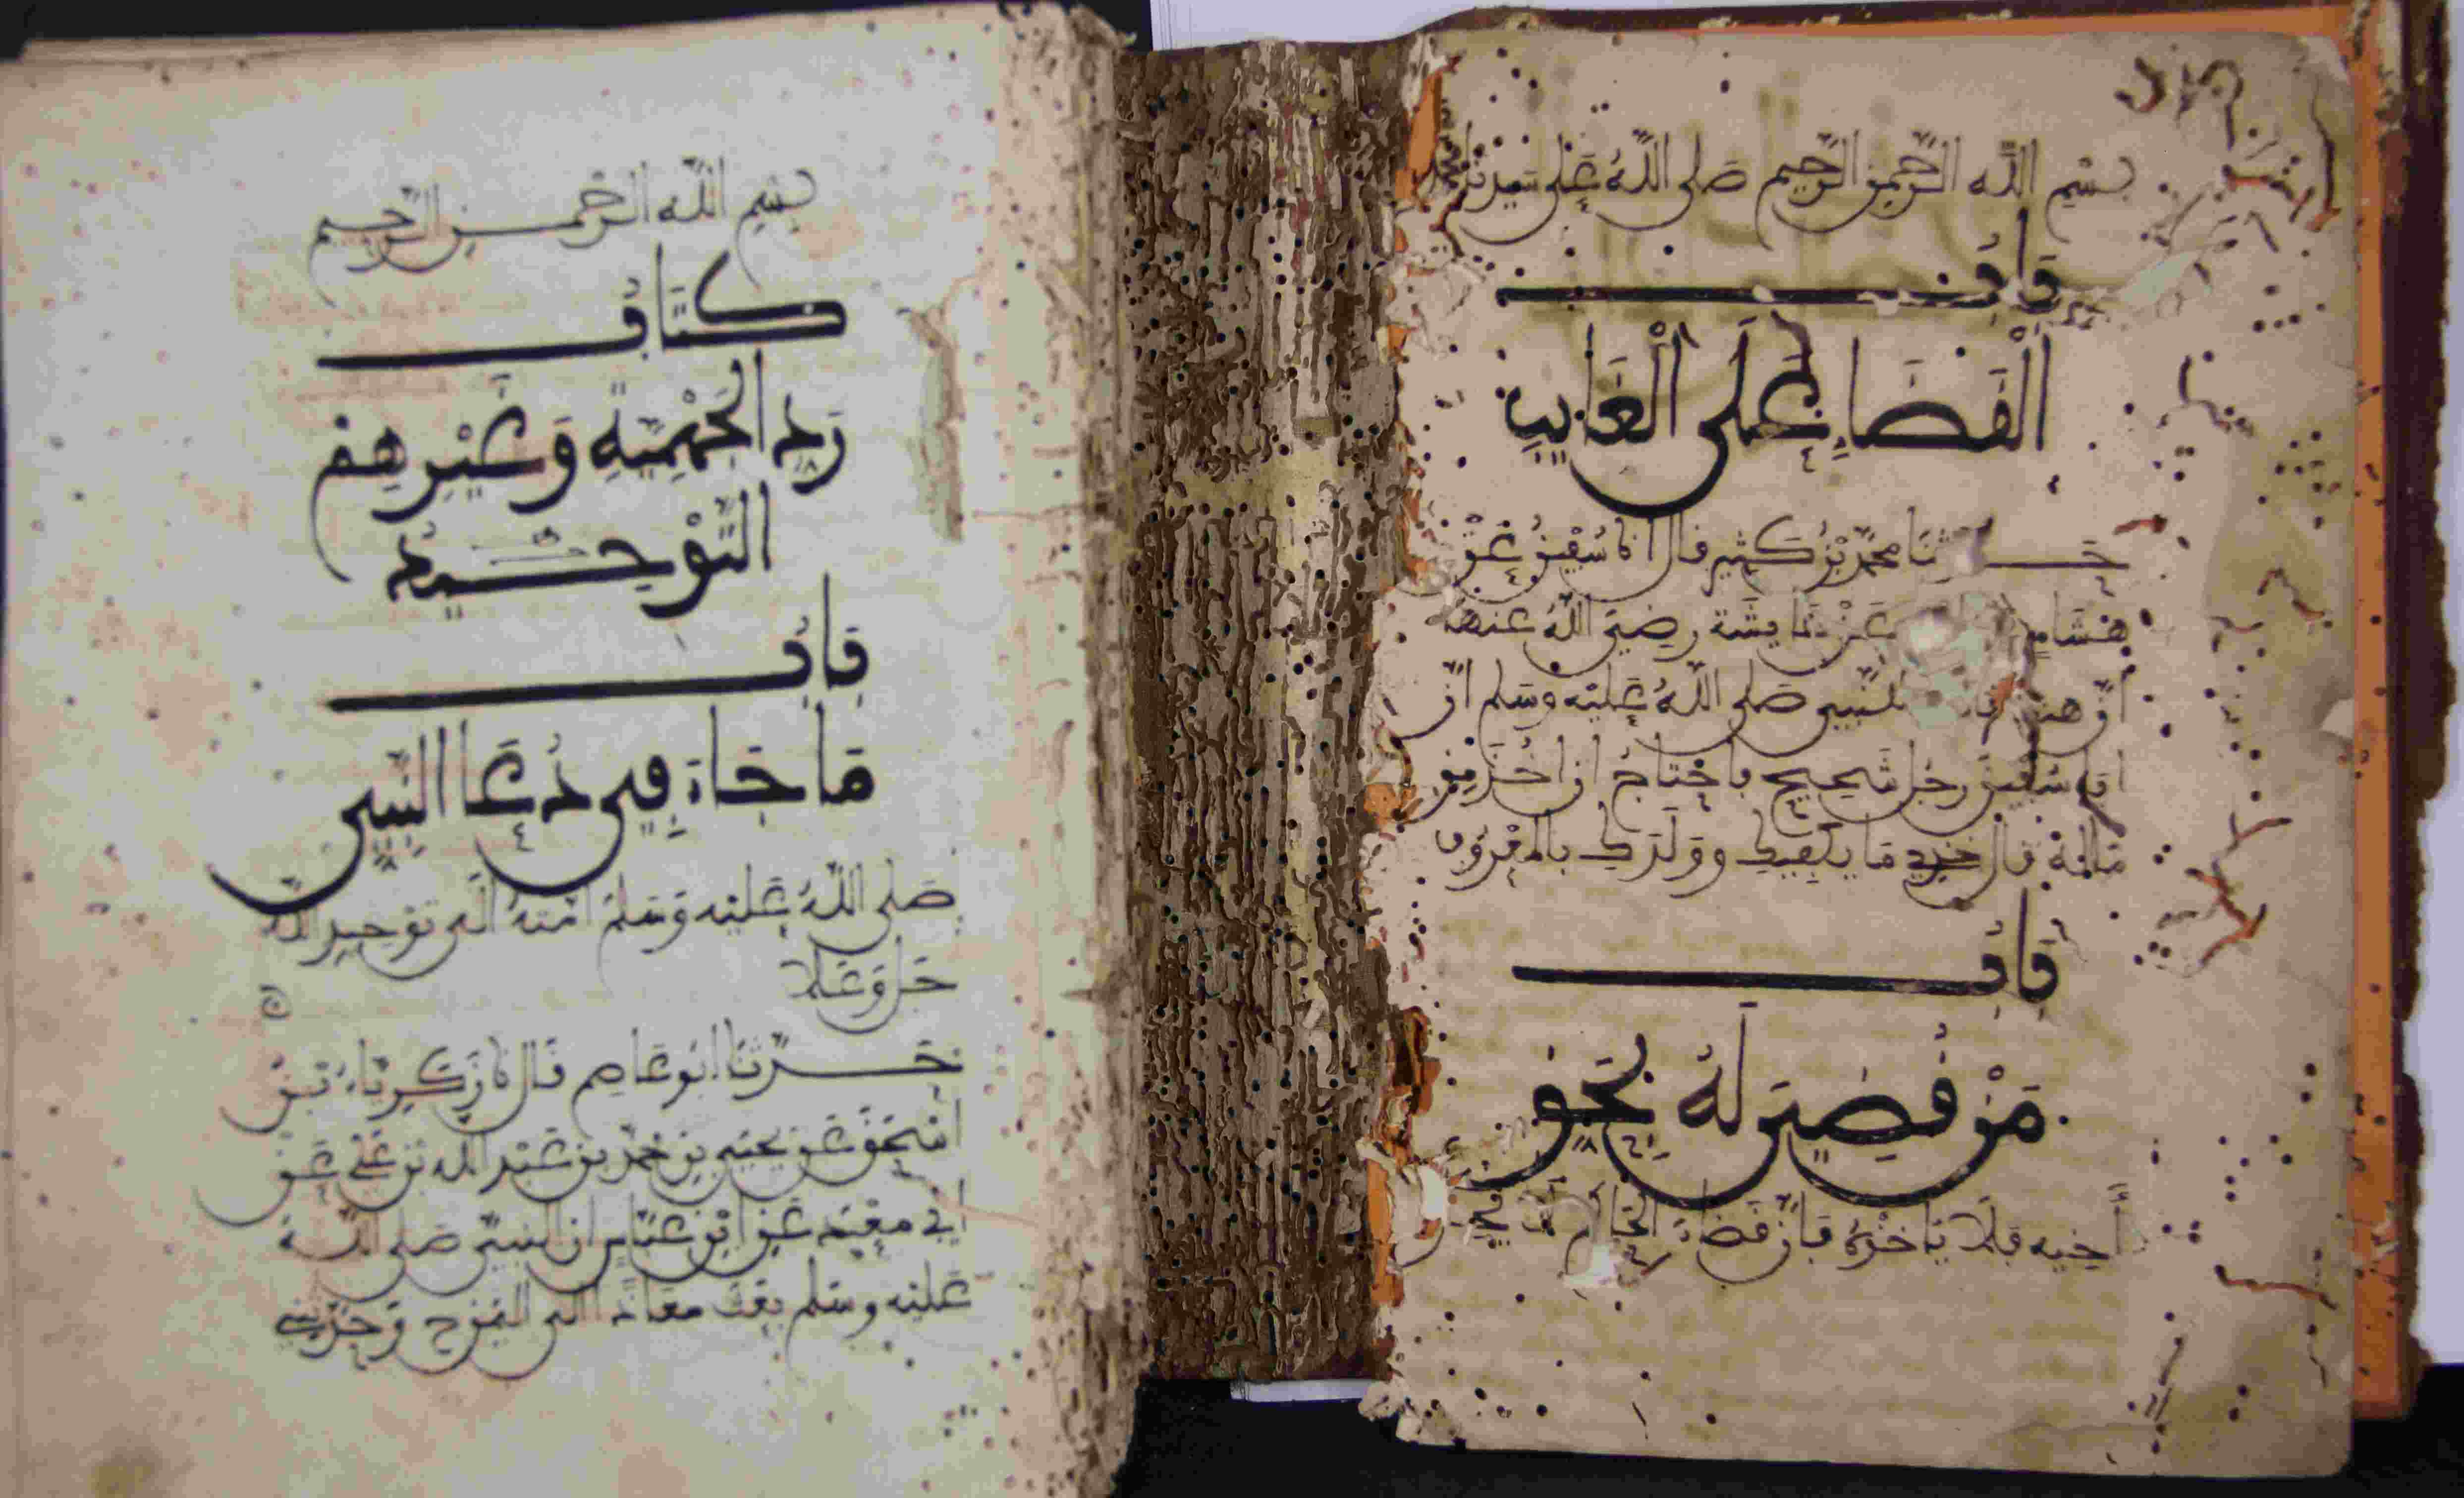 بسم الله الرحمن الرحيم صلى الله على سيدنا محمد
باب
القضاء على الغايب
حدثنا محمد بن كثير قال انا سفين عن
هشام عن عايشة رضي الله عنها
أن هند للنبي صلى الله عليه وسلم ان
ابا سفين رجل شحيح فاحتاج ان اخذ من
ماله قال خذي ما يكفيك وولدك بالمعروف
باب
من قضي له بحق
أخيه فلا ياخذه فإن قضاء الحاكم لا
بسم الله الرحمن الرحيم
كتاب
رد الجهمية وغيرهم
التوحيد
باب
ما جاء في دعا النبي
صلى الله عليه وسلم امته الى توحيد الله
جل وعلا
حدثنا ابو عاصم قال نا زكرياء بن
اسحق عن يحيى بن محمد بن عبد الله بن عن
ابي معبد عن ابن عباس ان النبي صلى الله
عليه وسلم بعث معاذا الى اليمن ح وحدثني